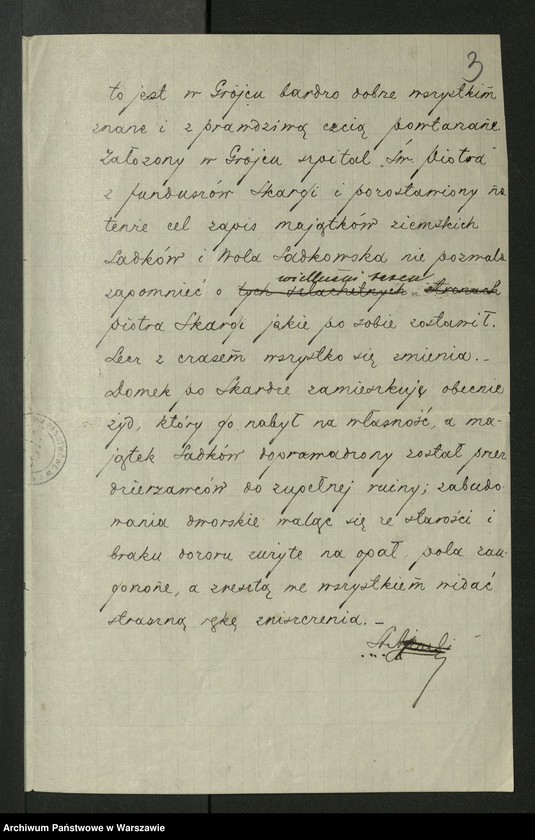 3
to jest w Grójcu bardzo dobrze wszystkim
znane i z prawdziwą czcią powtarzane
Założony w Grójcu szpital Św. Piotra
z funduszów Skargi i pozostawiony na
tenże cel zapis majątków ziemskich
Sadków i Wola Sadkowska nie pozwala
wielkości serca
zapomnieć o tych szlachetnych stronach
Piotra Skargi jakie po sobie zostawił.
Lecz z czasem wszystko się zmienia._
Domek po Skardze zamieszkuje obecnie
żyd, który go nabył na własność, a ma-
jątek Sadków doprowadzony został przez
dzierżawców do zupełnej ruiny; zabudo-
wania dworskie waląc się ze starości i
braku dozoru zużyte na opał, pola zau-
gonone, a zresztą we wszystkiem widać
straszną rękę zniszczenia._
Archiwum Państwowe w Warszawie